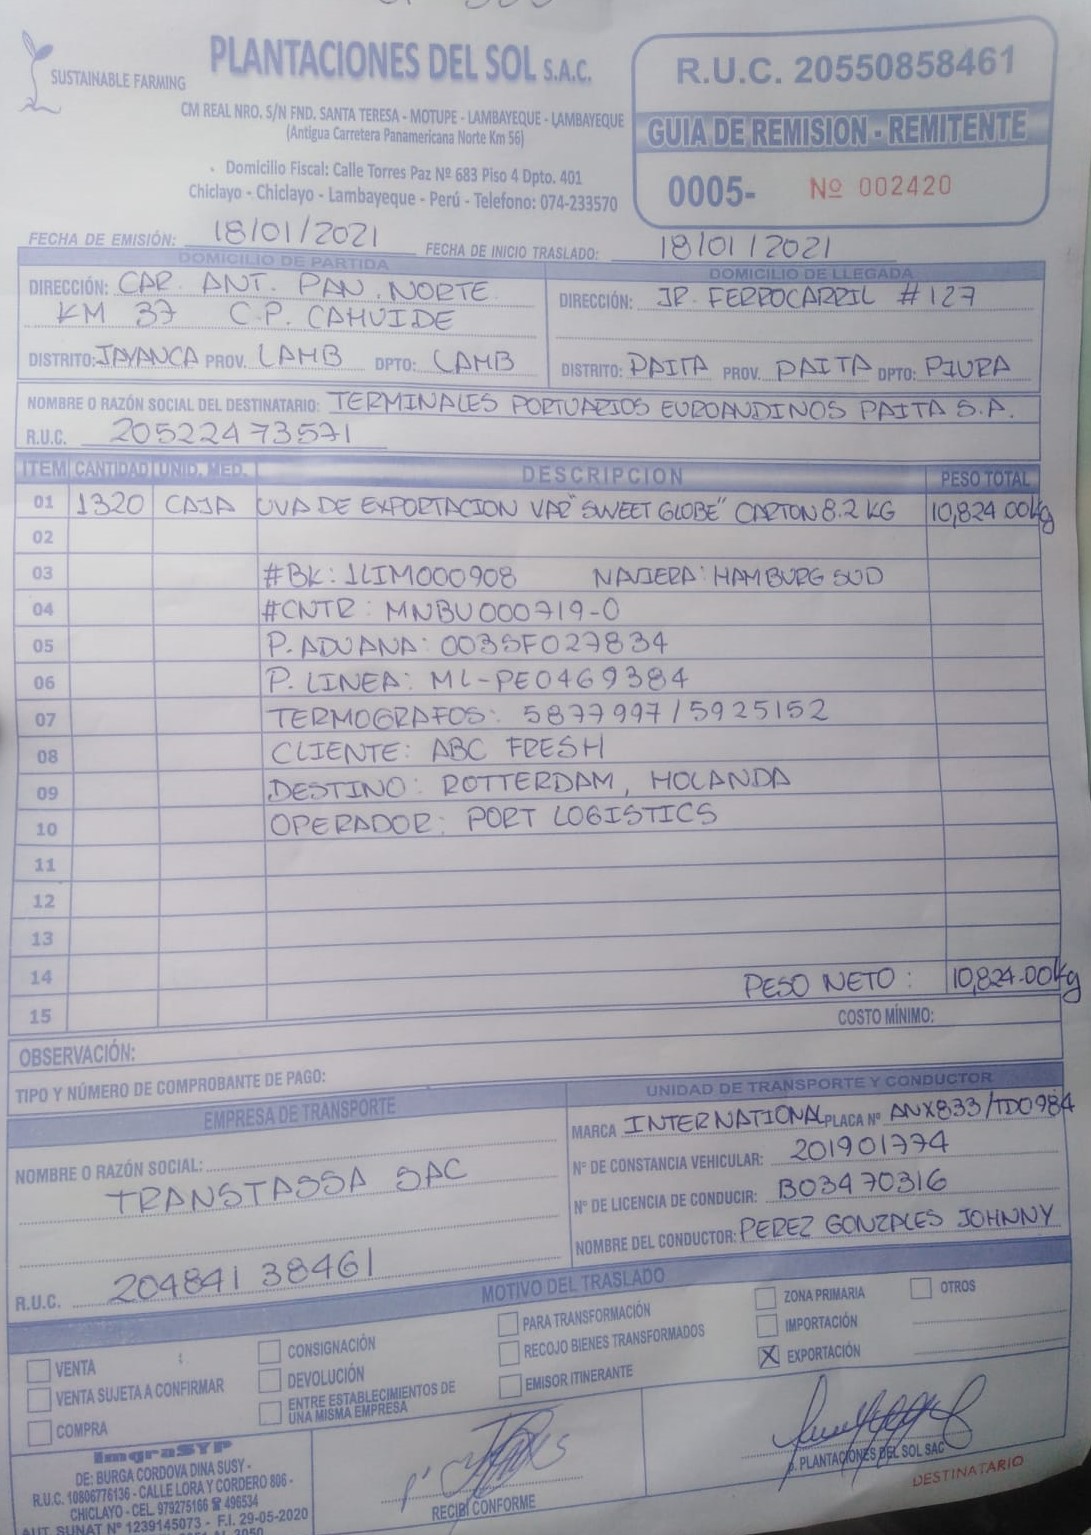 PLANTACIONES DEL SOL S.A.C.
SUSTAINABLE FARMING
CM REAL NRO. S/N FND. SANTA TERESA - MOTUPE - LAMBAYEQUE - LAMBAYEQUE
(Antigua Carretera Panamericana Norte Km 56)
Domicilio Fiscal: Calle Torres Paz Nº 683 Piso 4 Dpto. 401
Chiclayo - Chiclayo - Lambayeque - Perú - Telefono: 074-233570
R.U.C. 20550858461
GUIA DE REMISION - REMITENTE
0005- Nº 002420
FECHA DE EMISIÓN: 18/01/2021 FECHA DE INICIO TRASLADO: 18/01/2021
DOMICILIO DE PARTIDA
DIRECCIÓN: CAR. ANT. PAN. NORTE
KM 37 C.P. CAHUIDE
DISTRITO: JAYANCA PROV. LAMB DPTO: LAMB
DOMICILIO DE LLEGADA
DIRECCIÓN: JR. FERROCARRIL #127
DISTRITO: PAITA PROV. PAITA DPTO: PIURA
NOMBRE O RAZÓN SOCIAL DEL DESTINATARIO: TERMINALES PORTUARIOS EUROANDINOS PAITA S.A.
R.U.C. 20522473571
ITEM CANTIDAD UNID. MED. DESCRIPCION PESO TOTAL
01 1320 CAJA UVA DE EXPORTACION VAR "SWEET GLOBE" CARTON 8.2 KG 10,824.00kg
02
03 #BK: 1LIM000908 NAVIERA: HAMBURG SUD
04 #CNTR: MNBU000719-0
05 P. ADUANA: 0035F027834
06 P. LINEA: ML-PE0469384
07 TERMOGRAFOS: 5877997/5925152
08 CLIENTE: ABC FRESH
09 DESTINO: ROTTERDAM, HOLANDA
10 OPERADOR: PORT LOGISTICS
11
12
13
14 PESO NETO: 10,824.00kg
15 COSTO MÍNIMO:
OBSERVACIÓN:
TIPO Y NÚMERO DE COMPROBANTE DE PAGO:
EMPRESA DE TRANSPORTE
NOMBRE O RAZÓN SOCIAL:
TRANSTASSA SAC
R.U.C. 20484138461
UNIDAD DE TRANSPORTE Y CONDUCTOR
MARCA INTERNATIONAL PLACA Nº ANX833/TDO984
Nº DE CONSTANCIA VEHICULAR: 201901774
Nº DE LICENCIA DE CONDUCIR: B03470316
NOMBRE DEL CONDUCTOR: PEREZ GONZALES JOHNNY
MOTIVO DEL TRASLADO
VENTA
VENTA SUJETA A CONFIRMAR
COMPRA
CONSIGNACIÓN
DEVOLUCIÓN
ENTRE ESTABLECIMIENTOS DE
UNA MISMA EMPRESA
PARA TRANSFORMACIÓN
RECOJO BIENES TRANSFORMADOS
EMISOR ITINERANTE
ZONA PRIMARIA
IMPORTACIÓN
X EXPORTACIÓN
OTROS
ImgraSYP
DE: BURGA CORDOVA DINA SUSY -
R.U.C. 10806776136 - CALLE LORA Y CORDERO 806 -
CHICLAYO - CEL. 979275166 ☎ 496534
AUT. SUNAT Nº 1239145073 - F.I. 29-05-2020
RECIBÍ CONFORME
p. PLANTACIONES DEL SOL SAC
DESTINATARIO